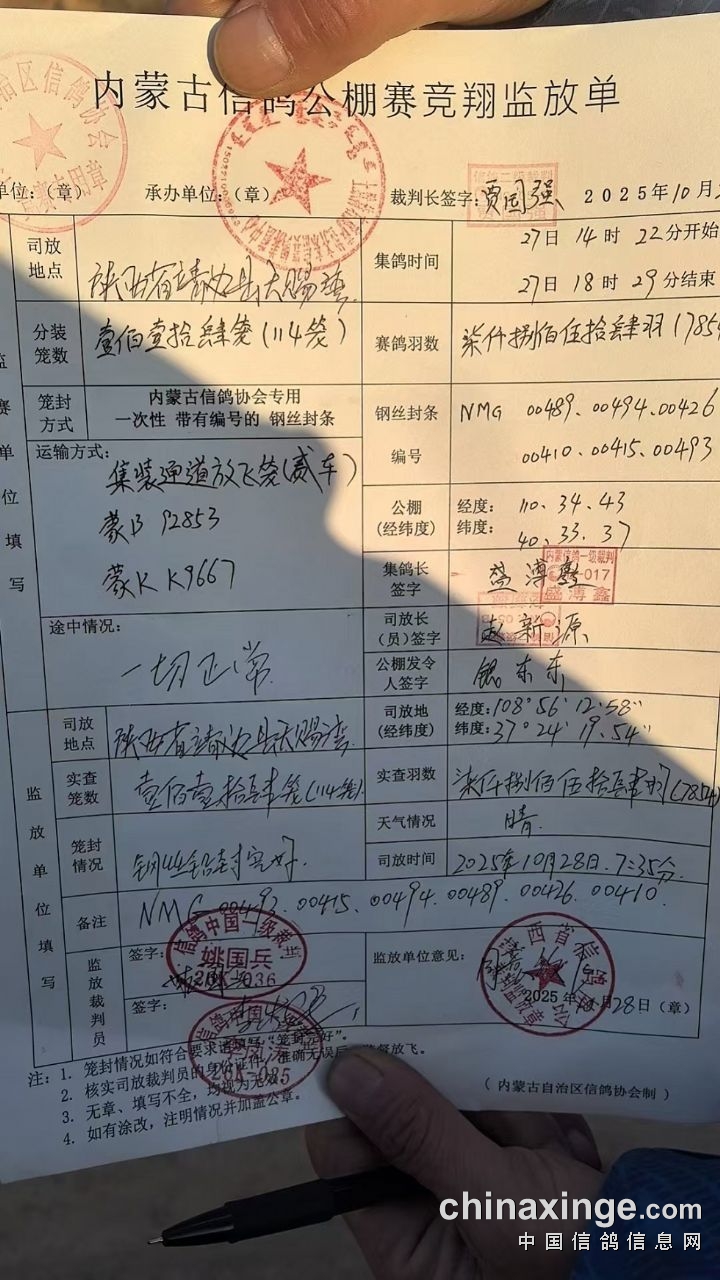 内蒙古信鸽公棚赛竞翔监放单
单位:(章) 承办单位:(章) 裁判长签字:贾国强 2025年10月
司放地点 陕西省靖边县天赐湾 集鸽时间 27日14时22分开始
27日18时29分结束
分装笼数 壹佰壹拾肆笼(114笼) 赛鸽羽数 柒仟捌佰伍拾肆羽(7854
笼封方式 内蒙古信鸽协会专用
一次性 带有编号的 钢丝封条
钢丝封条编号 NMG 00489.00494.00426
00410.00415.00493
运输方式:
集装通道放飞笼(威车)
蒙B 92853
蒙K K9667
公棚(经纬度) 经度: 110.34.43
纬度: 40.33.37
集鸽长签字 盛溥鑫
内蒙信鸽一级裁判
017
盛溥鑫
途中情况:
一切正常
司放长(员)签字 赵新源
公棚发令人签字 东东
监放单位填写
司放地点 陕西省靖边县天赐湾 司放地(经纬度) 经度:108°56′12.58″
纬度:37°24′19.54″
实查笼数 壹佰壹拾肆笼(114笼) 实查羽数 柒仟捌佰伍拾肆羽(7854)
笼封情况 钢丝铅封完好. 天气情况 晴.
司放时间 2025年10月28日.7:35分.
备注 NMG 00493.00415.00494.00489.00426.00410.
监放裁判员 签字:
信鸽中国一级裁判
姚国兵
签字:
监放单位意见:
2025年10月28日(章)
注: 1. 笼封情况如符合要求请填写“笼封完好”。
2. 核实司放裁判员的身份证件,准确无误后,监督放飞。
3. 无章、填写不全,均视为无效。
4. 如有涂改,注明情况并加盖公章。
(内蒙古自治区信鸽协会制)
chinaxinge.com
中国信鸽信息网